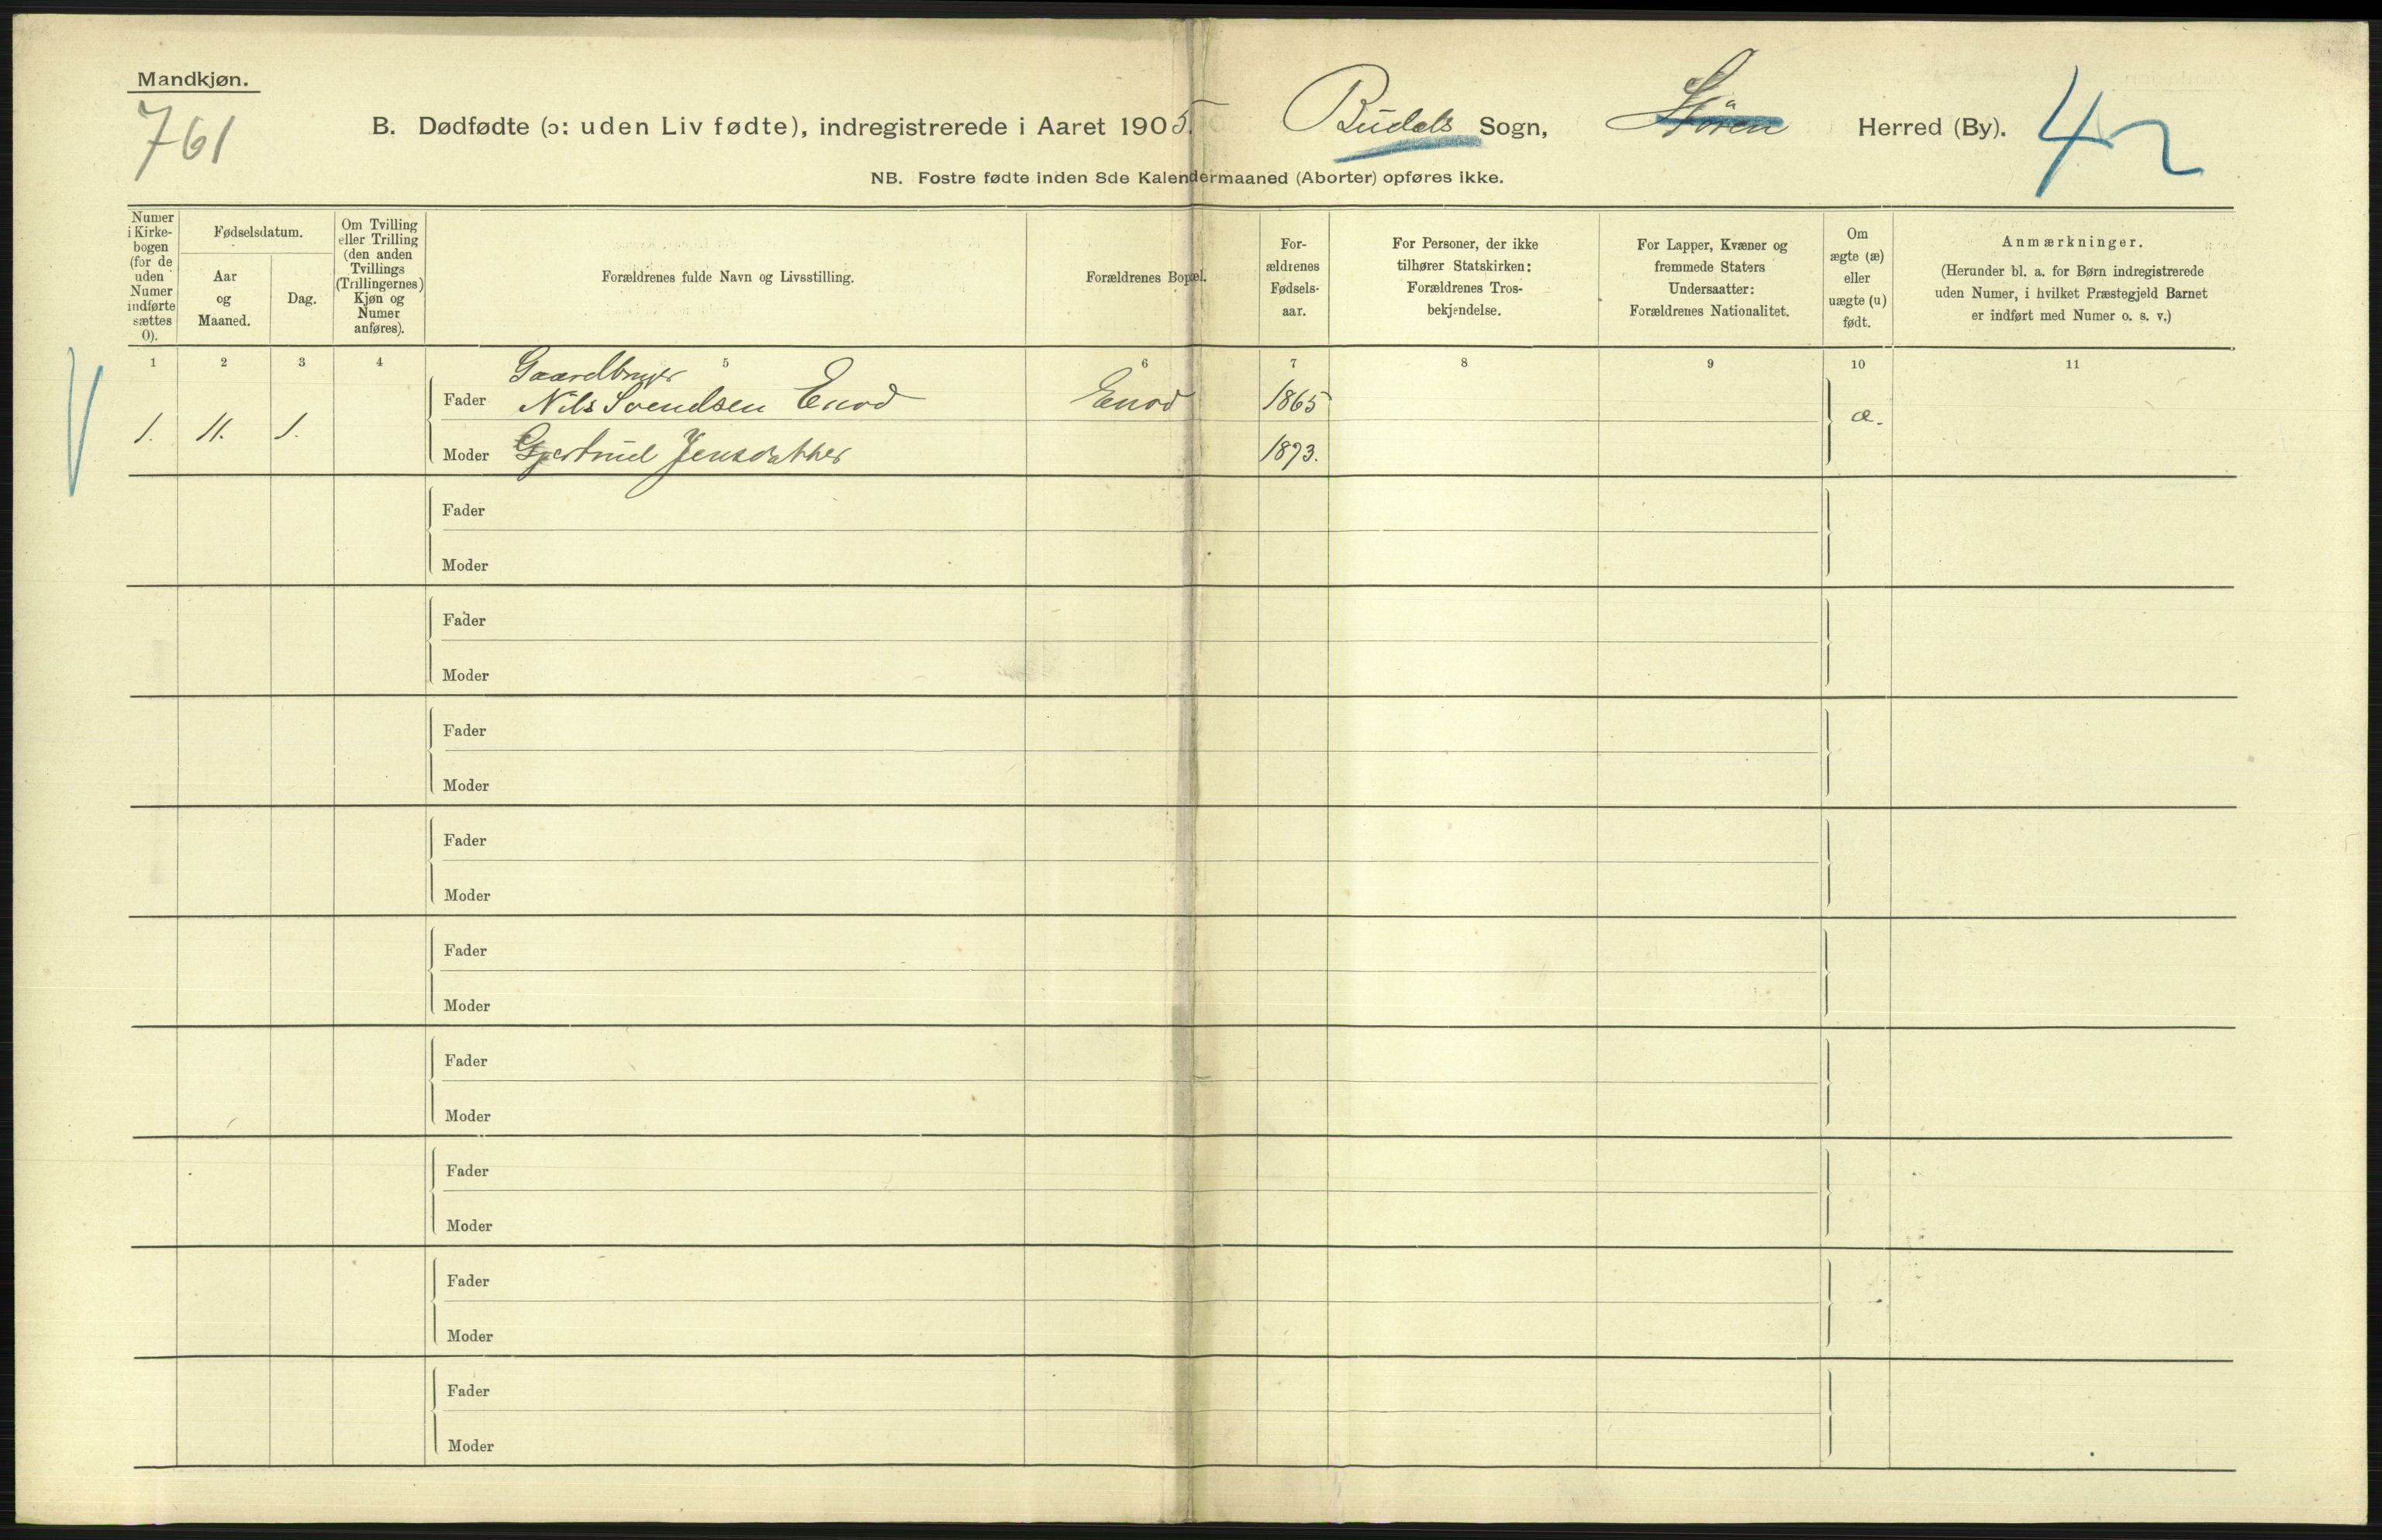 Mandkjøn.
761
B. Dødfødte (ɔ: uden Liv fødte), indregistrerede i Aaret 1905. Budals Sogn, Støren Herred (By). 42
NB. Fostre fødte inden 8de Kalendermaaned (Aborter) opføres ikke.
Numer i Kirke- bogen (for de uden Numer indførte sættes 0).
Fødselsdatum.
Aar og Maaned.
Dag.
Om Tvilling eller Trilling (den anden Tvillings (Trillingernes) Kjøn og Numer anføres).
Forældrenes fulde Navn og Livsstilling.
Forældrenes Bopæl.
For- ældrenes Fødsels- aar.
For Personer, der ikke tilhører Statskirken: Forældrenes Tros- bekjendelse.
For Lapper, Kvæner og fremmede Staters Undersaatter: Forældrenes Nationalitet.
Om ægte (æ) eller uægte (u) født.
Anmærkninger.
(Herunder bl. a. for Børn indregistrerede uden Numer, i hvilket Præstegjeld Barnet er indført med Numer o. s. v.)
1 2 3 4 5 6 7 8 9 10 11
Gaardbruger
Fader Nils Svendsen Enod Enod 1865
1. 11. 1. æ.
Moder Gjertrud Jensdatter 1873.
Fader
Moder
Fader
Moder
Fader
Moder
Fader
Moder
Fader
Moder
Fader
Moder
Fader
Moder
Fader
Moder
Fader
Moder